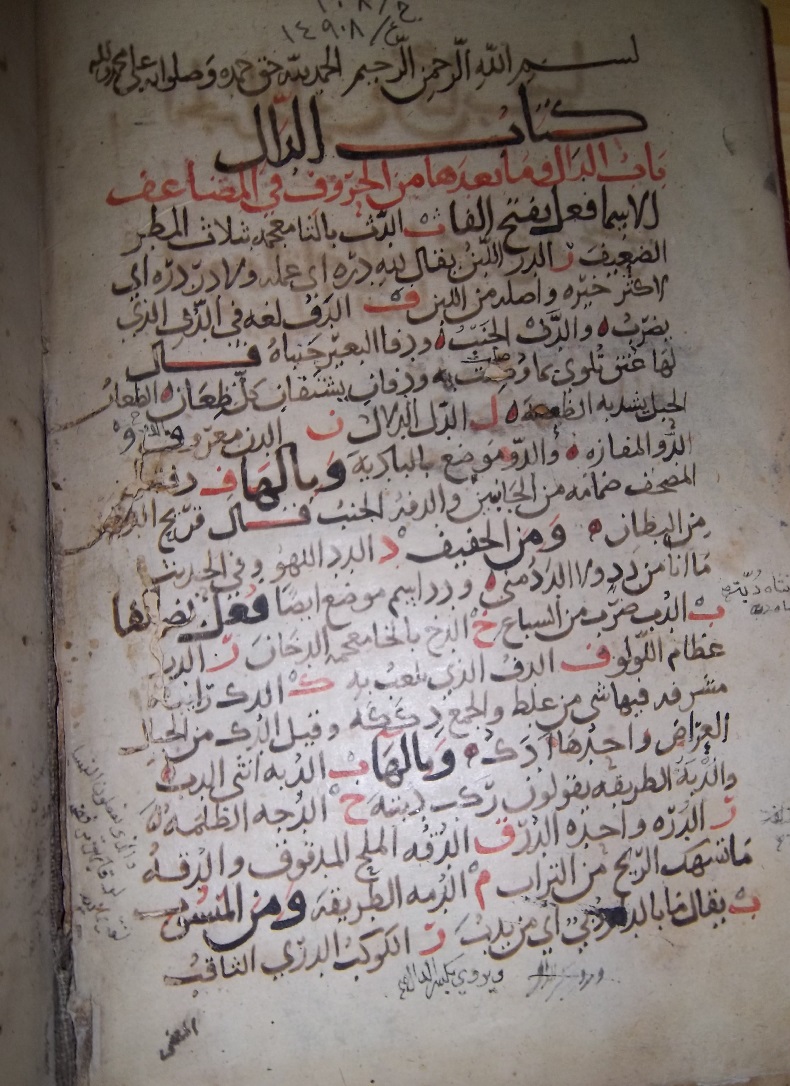 ح / ١٠٨
ع / ١٤٩٠٨
بسم الله الرحمن الرحيم الحمد لله حق حمده وصلواته على محمد واله
كتاب الدال
باب الدال وما بعدها من الحروف في المضاعف
الاسما فعل بفتح الفا ث الدث بالثا معجمه بثلاث المطر
الضعيف ر الدر اللبن يقال لله دره اي عمله ولا در دره اي
لا كثر خيره واصله من اللبن ف الدف لغه في الدف الذي
يضرب به والدف الجنب ودفا البعير جنباه قال
لها عنق تلوي بما وصلت به ودفان يشتفان كل ظعان الظعان
الحبل يشد به الظعينه ل الدل الدلال ن الدن معروف و
الدو المفازه والدو موضع بالباديه وبالها ف دفتا
المصحف ضمامه من الجانبين والدفه الجنب قال
من البطان ومن الخفيف د الدد اللهو وفي الحديث
ما انا من دد ولا الدد مني ودد اسم موضع ايضا فعل بضم الفا
ب الدب ضرب من السباع خ الدخ بالخا معجمه الدخان ر الدر
عظام اللولو ف الدف الذي يلعب به ك الدك
مشرفه فيها شي من غلظ والجمع دككه وقيل الدك من الجبال
العراض واحدها ادك وبالها ب الدبه انثى الدب
والدبه الطريقه يقولون ركب دبته ج الدجه الظلمه
ر الدره واحده الدر ق الدقه الملح المدقوق والدقه
ما تسهك الريح من التراب م الدمه الطريقه ومن المنسوب
ب يقال ما بالدار دبي اي من يدب ر الكوكب الدري الثاقب
ويروى بكسر الدال